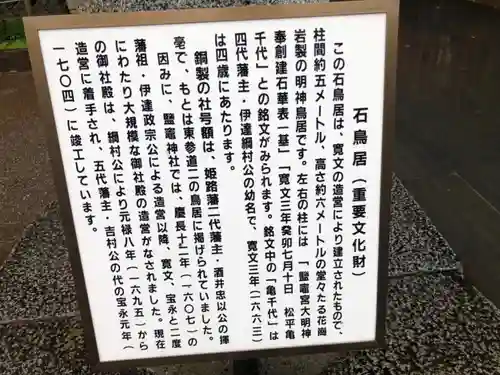 石鳥居（重要文化財）
この石鳥居は、寛文の造営により建立されたもので、
柱間約五メートル、高さ約六メートルの堂々たる花崗
岩製の明神鳥居です。左右の柱には「鹽竈宮大明神
奉創建石華表一基」「寛文三年癸卯七月十日　松平亀
千代」との銘文がみられます。銘文中の「亀千代」は
四代藩主・伊達綱村公の幼名で、寛文三年（一六六三）
は四歳にあたります。
銅製の社号額は、姫路藩二代藩主・酒井忠以公の揮
毫で、もとは東参道二の鳥居に掲げられていました。
因みに、鹽竈神社では、慶長十二年（一六〇七）の
藩祖・伊達政宗公による造営以降、寛文、宝永と二度
にわたり大規模な御社殿の造営がなされました。現在
の御社殿は、綱村公により元禄八年（一六九五）から
造営に着手され、五代藩主・吉村公の代の宝永元年（
一七〇四）に竣工しています。